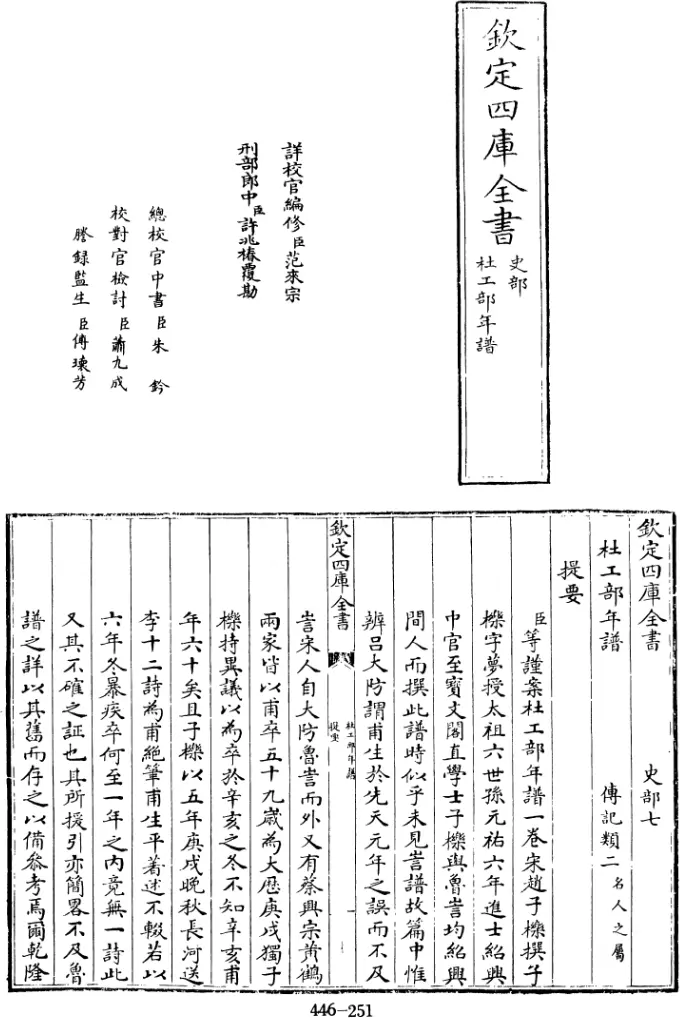 欽定四庫全書
史部
杜工部年譜
詳校官編修臣范來宗
刑部郎中臣許兆椿覆勘
總校官中書臣朱鈐
校對官檢討臣蕭九成
謄錄監生臣傅瑓芳
欽定四庫全書 史部七
杜工部年譜 傳記類二名人之屬
提要
臣等謹案杜工部年譜一卷宋趙子櫟撰子
櫟字夢授太祖六世孫元祐六年進士紹興
中官至寳文閣直學士子櫟與魯訔均紹興
間人而撰此譜時似乎未見訔譜故篇中惟
辨吕大防謂甫生於先天元年之誤而不及
欽定四庫全書
杜工部年譜
提要
訔宋人自大防魯訔而外又有蔡興宗黄鶴
兩家皆以甫卒五十九嵗為大厯庚戌獨子
櫟持異議以為卒於辛亥之冬不知辛亥甫
年六十矣且子櫟以五年庚戌晚秋長河送
李十二詩為甫絶筆甫生平著述不輟若以
六年冬暴疾卒何至一年之内竟無一詩此
又其不確之証也其所援引亦簡畧不及魯
譜之詳以其舊而存之以備參考焉爾乾隆
446-251